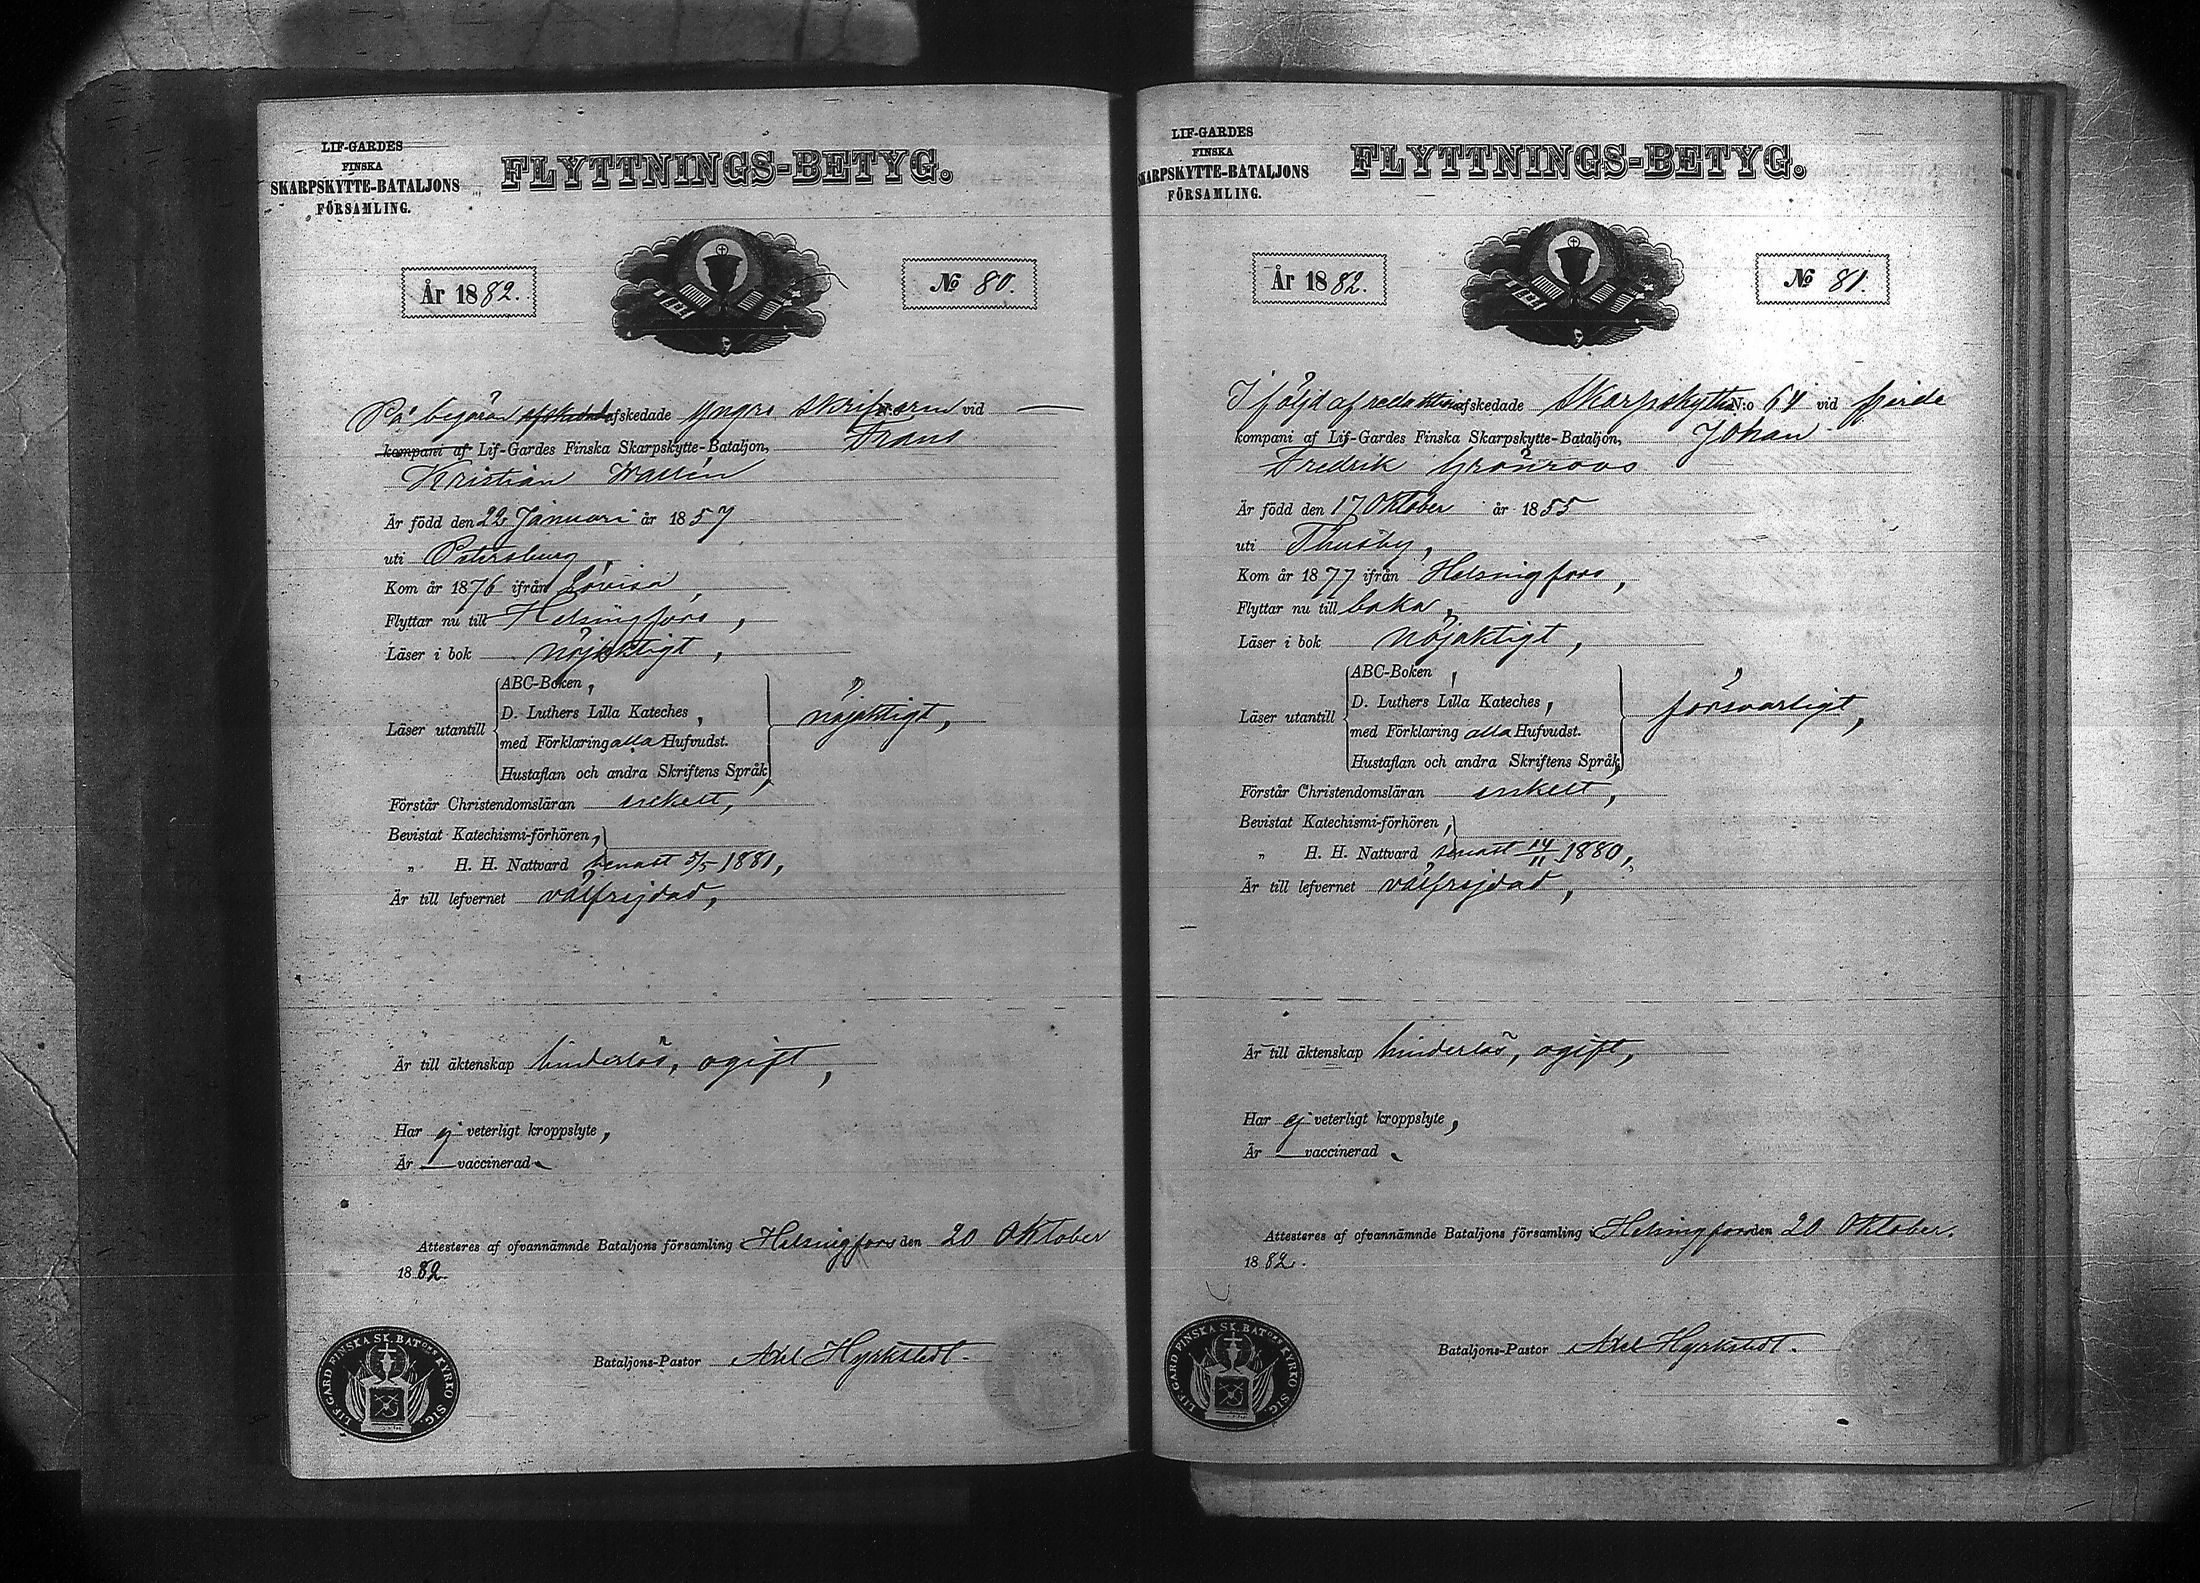 LIF-GARDES
FINSKA
SKARPSKYTTE-BATALJONS
FÖRSAMLING.
FLYTTNINGS-BETYG.
År 1882.
No 80.
På begäran afskedade Yngre Skrifvaren vid —
kompani af Lif-Gardes Finska Skarpskytte-Bataljon, Frans
Kristian Wallin
Är född den 22 Januari år 1857
uti Petersburg,
Kom år 1876 ifrån Lovisa,
Flyttar nu till Helsingfors,
Läser i bok nöjaktigt,
Läser utantill
ABC-Boken,
D. Luthers Lilla Kateches,
med Förklaring alla Hufvudst.
Hustaflan och andra Skriftens Språk,
nöjaktigt,
Förstår Christendomsläran enkelt,
Bevistat Katechismi-förhören,
„ H. H. Nattvard senast 5/5 1881,
Är till lefvernet välfrejdad,
Är till äktenskap hinderlös, ogift,
Har ej veterligt kroppslyte,
Är — vaccinerad.
Attesteras af ofvannämnde Bataljons församling Helsingfors den 20 Oktober
1882.
Bataljons-Pastor Axel Hyrkstedt.
LIF GARD FINSKA SK. BATONS KYRKO SIG.
LIF-GARDES
FINSKA
SKARPSKYTTE-BATALJONS
FÖRSAMLING.
FLYTTNINGS-BETYG.
År 1882.
No 81.
I följd af reduktion afskedade Skarpskytten N:o 64 vid fjerde
kompani af Lif-Gardes Finska Skarpskytte-Bataljon, Johan
Fredrik Grönroos
Är född den 17 Oktober år 1855
uti Thusby,
Kom år 1877 ifrån Helsingfors,
Flyttar nu till baka,
Läser i bok nöjaktigt,
Läser utantill
ABC-Boken,
D. Luthers Lilla Kateches,
med Förklaring alla Hufvudst.
Hustaflan och andra Skriftens Språk,
försvarligt,
Förstår Christendomsläran enkelt,
Bevistat Katechismi-förhören,
„ H. H. Nattvard senast 14/11 1880,
Är till lefvernet välfrejdad,
Är till äktenskap hinderlös, ogift,
Har ej veterligt kroppslyte,
Är — vaccinerad.
Attesteras af ofvannämnde Bataljons församling i Helsingfors den 20 Oktober.
1882.
Bataljons-Pastor Axel Hyrkstedt.
LIF GARD FINSKA SK. BATONS KYRKO SIG.